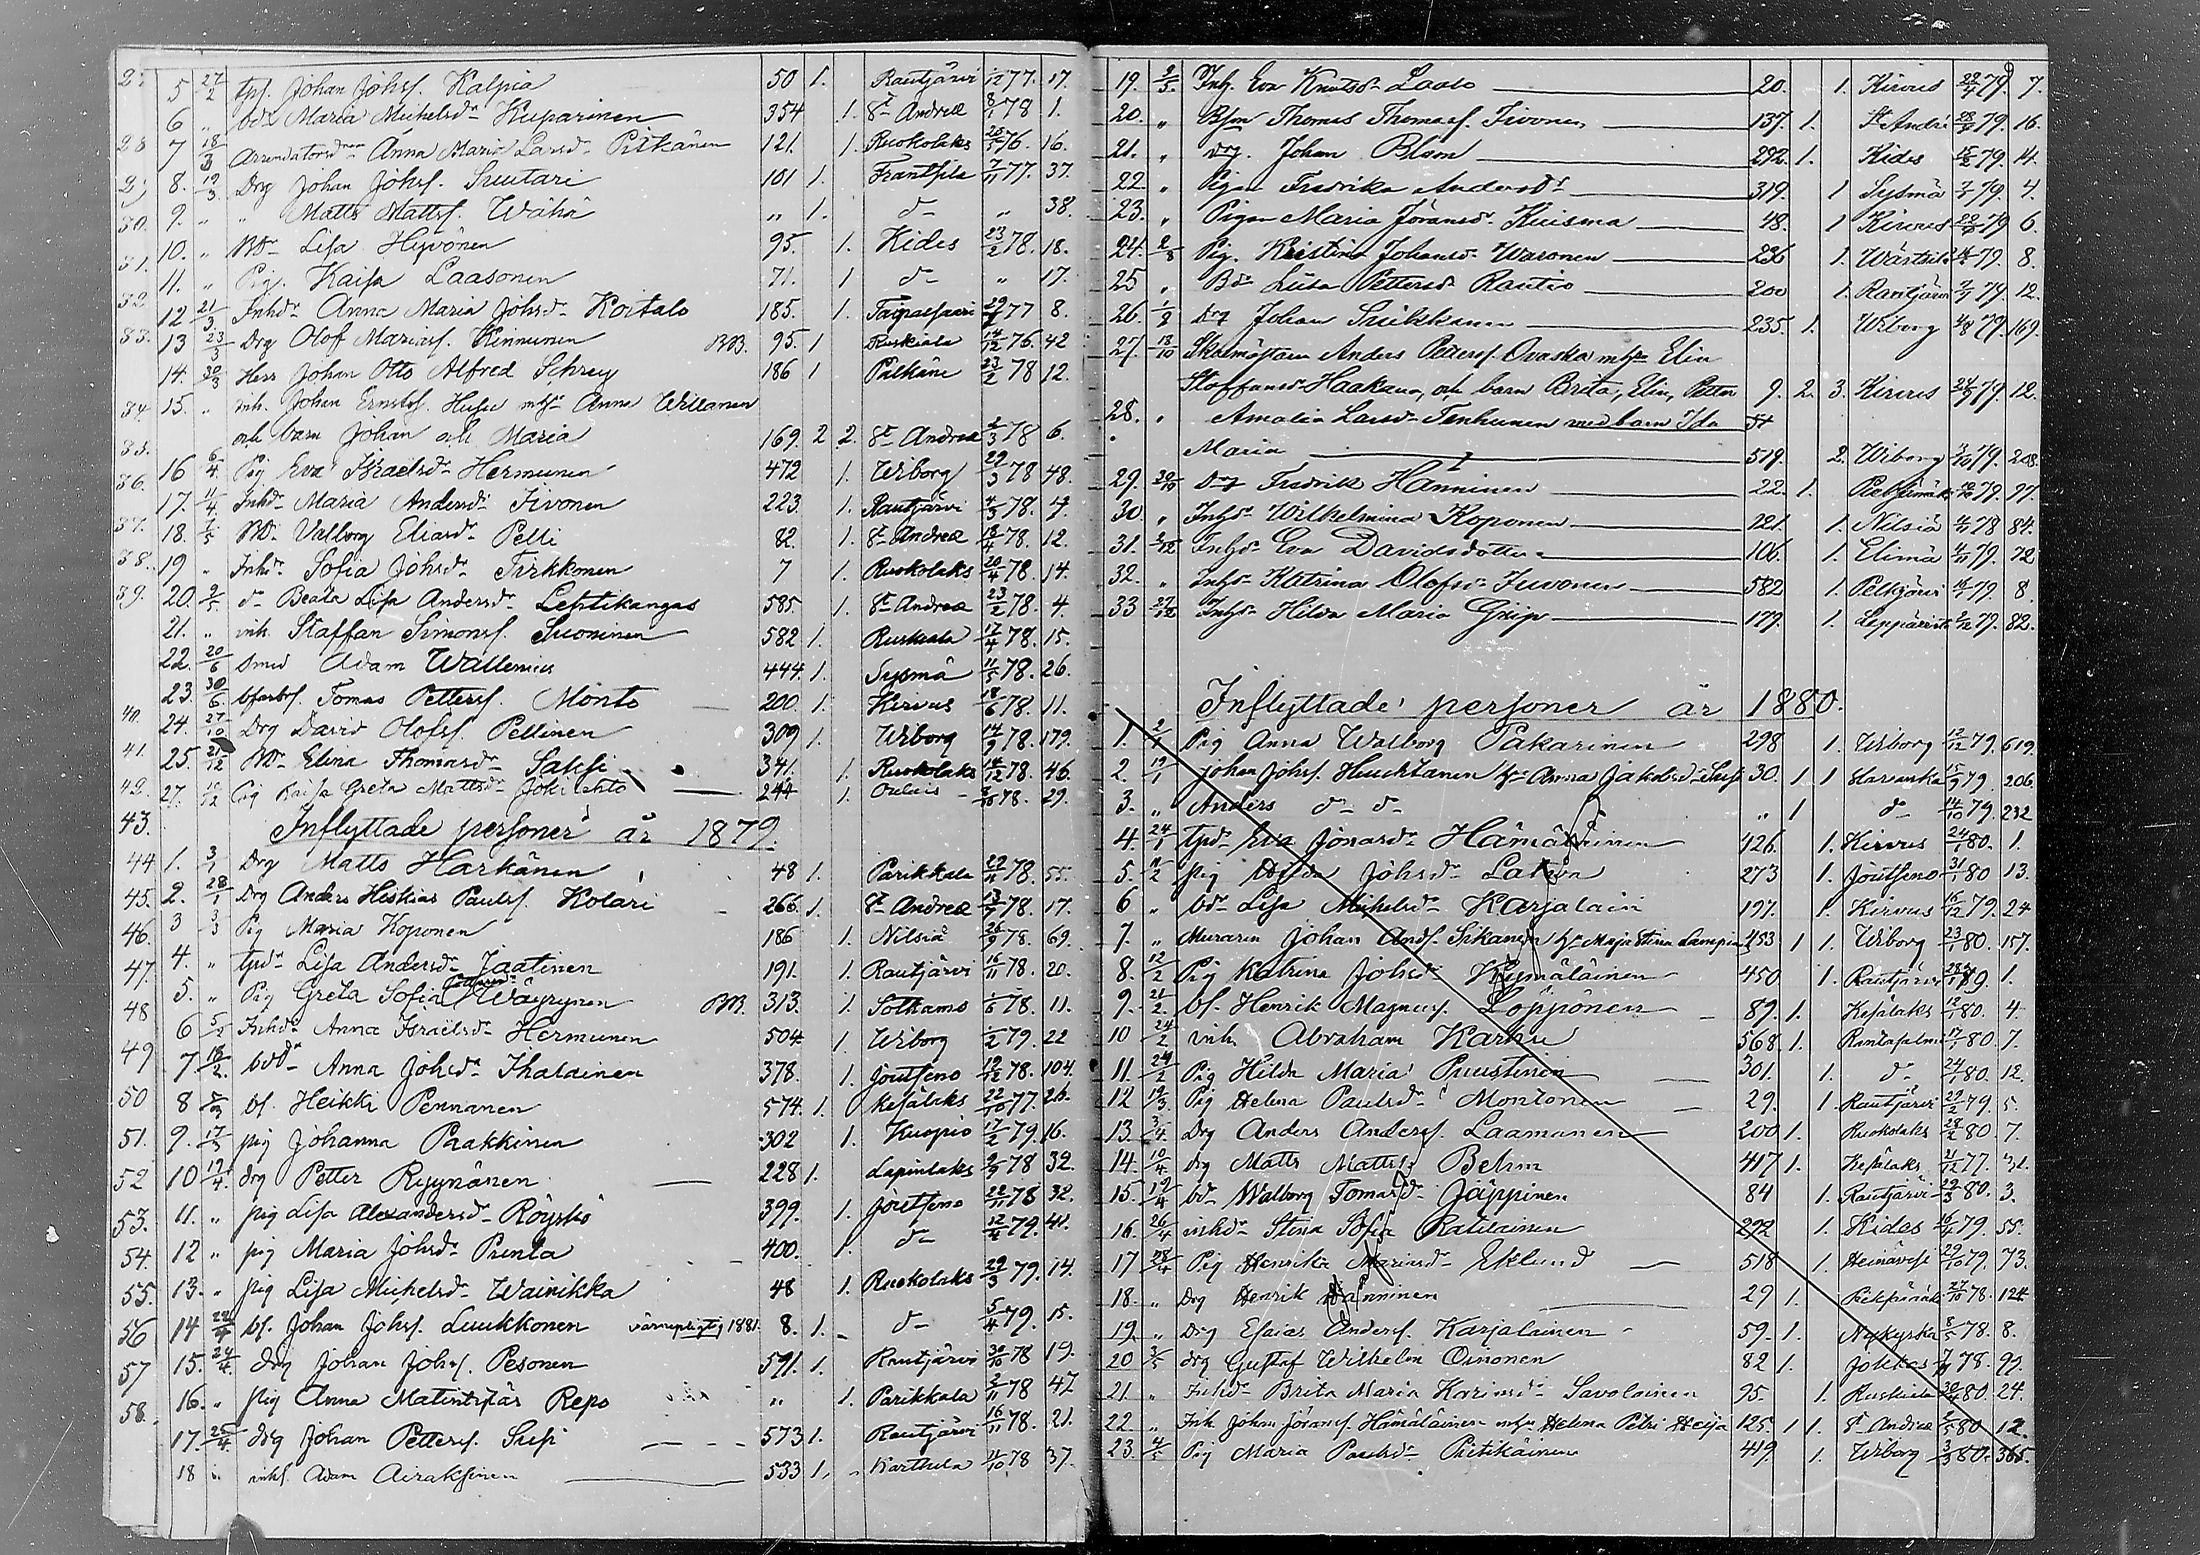 5 27/2 tpf. Johan Johsf. Kalpia 50 1. Rautjärvi 77. 17.
6 „ bdr Maria Michelsdr Kuparinen 354 1. St Andreæ 8/1 78 1.
7 18/3 Arrendatorsdr Anna Maria Larsdr Pitkänen 121. 1. Ruokolaks 76. 16.
8. 19/3 Drg Johan Johsf. Suutari 101 1. Frantsila 7/11 77. 37.
9. „ „ Matts Mattsf. Wähä „ 1. do „ 38.
10. „ Lisa Hyvönen 95. 1. Kides 23/2 78. 18.
11. „ Pig. Kaisa Laasonen 71. 1 do „ 17.
12 21/3 Inhdr Anna Maria Johsdr Koitalo 185. 1. 77 8.
13 23/3 Drg Olof Mariasf. Kinnunen BB. 95. 1 Ruskiala 14/12 76. 42
14. 30/3 Herr Johan Otto Alfred Schrey 186 1 Pälkäne 23/2 78 12.
15. „ inh. Johan Ernstsf. Husu Anna Willanen
och barn Johan och Maria 169. 2 2. St Andreæ 78 6.
16 6/4 Pig Eva Israelsdr Hermunen 472 1. Wiborg 29/3 78 48.
17. 11/4 Inhdr Maria Andersdr Iivonen 223. 1. Rautjärvi 78. 7.
18. 7/5 Valborg Eliasdr Pelli 82. 1. St Andreæ 78. 12.
19 „ Inhdr Sofia Johsdr Tirkkonen 7 1. Ruokolaks 20/4 78. 14.
20. 9/5 do Beata Lisa Andersdr Lehtikangas 585. 1. St Andreæ 23/2 78. 4.
21. „ inh. Staffan Simonsf. Suoninen 582 1. Ruskiala 17/4 78. 15.
22. 20/6 Smed Adam Wallenius 444. 1. Sysmä 11/5 78. 26.
23. 30/6 Tomas Pettersf. Monto 200. 1. Kirvus 18/6 78. 11.
24. 27/10 Drg David Olofsf. Pellinen 309 1. Wiborg 14/9 78. 179.
25. 21/12 Elina Thomasdr Saksi 341. 1. Ruokolaks 14/12 78. 46.
27. Pig Kaisa Greta Mattsdr Jokilehto 244 1. Oulais 78. 29.
Inflyttade personer år 1879.
1. 3/1 Drg Matts Harkänen 48 1. Parikkala 78. 55.
2. 28/1 Drg Anders Heskias Paulsf. Kolari 266. 1. St Andreæ 78. 17.
3 3/3 Pig Maria Koponen 186 1. Nilsiä 26/9 78. 69.
4. „ tpdr Lisa Andersdr Jaatinen 191. 1. Rautjärvi 16/11 78. 20.
5. „ Pig Greta Sofia Wäyrynen BB. 313. 1. Sotkamo 78. 11.
6 5/2 Inhdr Anna Israelsdr Hermunen 504 1. Wiborg 79. 22
7 16/2. Anna Johsdr Ihalainen 378. 1. Joutseno 19/12 78. 104.
8 bf. Heikki Pennanen 574. 1. Kesälaks 22/10 77. 26.
9. 17/3 pig Johanna Paakkinen 302 1. Kuopio 17/2 79. 16.
10 17/4. drg Petter Ryynänen 228 1. Lapinlaks 78 32.
11. „ pig Lisa Alexandersdr Röyskö 399. 1. Joutseno 22/11 78 32.
12 „ pig Maria Johsdr Penta 400. 1. do 12/4 79. 41.
13. „ pig Lisa Michelsdr Wainikka 48 1. Ruokolaks 29/3 79. 14.
14 bf. Johan Johsf. Luukkonen värnepligtig 1881. 8. 1. do 5/4 79. 15.
15. 24/4. drg Johan Johsf. Pesonen 591. 1. Rautjärvi 30/10 78 19.
16. „ pig Anna Matintytär Repo „ 1. Parikkala 78 47
17. 25/4 drg Johan Pettersf. Susi 573 1. Rautjärvi 16/11 78. 21.
18 „ inhf. Adam Airaksinen 533 1. Karttula 78 37.
19. Inh. Eva Knutsdr Laalo 20. 1. Kirvus 79. 7.
20. „ Bfm Thomas Thomasf. Iivonen 137. 1. St Andreæ 79. 16.
21. „ drg. Johan Blom 292. 1. Kides 79. 11.
22. „ Pigan Fredrika Andersdr 319. 1 Sysmä 79. 4
23. „ Pigan Maria Göransdr Kuisma 48. 1 Kirvus 79 6.
24. Pig. Kristina Johansdr Waronen 236 1. Wärtsilä 79. 8.
25 „ Bdr Luisa Pettersdr Rautio 200 1. Rautjärvi 79. 12.
26. Drg Johan Suikkanen 235. 1. Wiborg 79. 169.
27. 18/10 Skolmästaren Anders Pettersf. Ovaska Elin
Staffansdr Haakana, och barn Brita, Elin, Petter 9. 2. 3. Kirvus 79. 12.
28. „ Amalia Larsdr Tenhunen med barn Ida
Maria 519. 2. Wiborg 79. 208.
29. Drg Fredrik Hänninen 22. 1. 79. 97.
30. „ Inhdr Wilhelmina Koponen 221. 1. Nilsiä 78 84.
31. Inhdr Eva Davidsdotter 106. 1. Elimä 79. 72
32. „ Inhdr Katrina Olofsdr Juvonen 582 1. Pelkjärvi 79. 8.
33 27/12 Inhdr Hilda Maria Grip 179. 1. 79. 82.
Inflyttade personer år 1880.
1. 2/1 Pig Anna Walborg Pakarinen 298 1. Wiborg 12/12 79. 619.
2. 19/1 Johan Johsf. Huuhtanen Anna Jakobsdr Susi 30. 1 1 79 206.
3. „ Anders do do „ 1 do 14/10 79. 232
4. 24/1 tpdr Eva Jonasdr Hämäläinen 126. 1. Kirvus 24/1 80. 1.
5. pig Hilda Johsdr Latva 273 1. Joutseno 31/1 80 13.
6 „ bdr Lisa Michelsdr Karjalain 197. 1. Kirvus 79. 24
7. „ Muraren Johan Andf. Sikanen Maja Stina Lampin 453 1 1. Wiborg 23/1 80. 157.
8. 12/2 Pig Katrina Johsdr Kymäläinen 450 1. Rautjärvi 1.
9. 21/2 bf. Henrik Magnusf. Löppönen 89. 1. Kesälaks 80. 4.
10 24/2 inh. Abraham Karhu 568. 1. Rantasalmi 17/1 80. 7.
11. 24/2 Pig Hilda Maria Puustinen 301. 1. do 24/1 80. 12.
12 Pig Helena Paulsdr Montonen 29. 1. Rautjärvi 79. 5.
13. Drg Anders Andersf. Laamanen 200 1. Ruokolaks 28/2 80. 7.
14. 10/4. drg Matts Mattsf. Behm 417 1. Kesälaks 77.
15. 19/4 bdr Walborg Tomasdr Jäppinen 84 1. Rautjärvi 29/3 80. 3.
16. 26/4 inhdr Stina Sofia Ratilainen 292 1. Kides 79. 55.
17 28/4 Pig Henrika Eklund 518 1. Heinävesi 79. 73.
18. „ Drg Henrik Hänninen 29 1. 78. 124
19. „ Drg Esaias Andersf. Karjalainen 59. 1. Nykyrka 8/5 78. 8.
20 3/5 drg Gustaf Wilhelm Oinonen 82 1. Jokkas 78. 99.
21. „ Inhdr Brita Maria Karinsdr Savolainen 95. 1. Ruskiala 80. 24.
22. „ Inh. Johan Göransf. Hämäläinen Helena Petri 125. 1 1. St Andreæ 80 12.
23. 4/5 Pig Maria Paulsdr Pietikäinen 419. 1. Wiborg 80. 365.